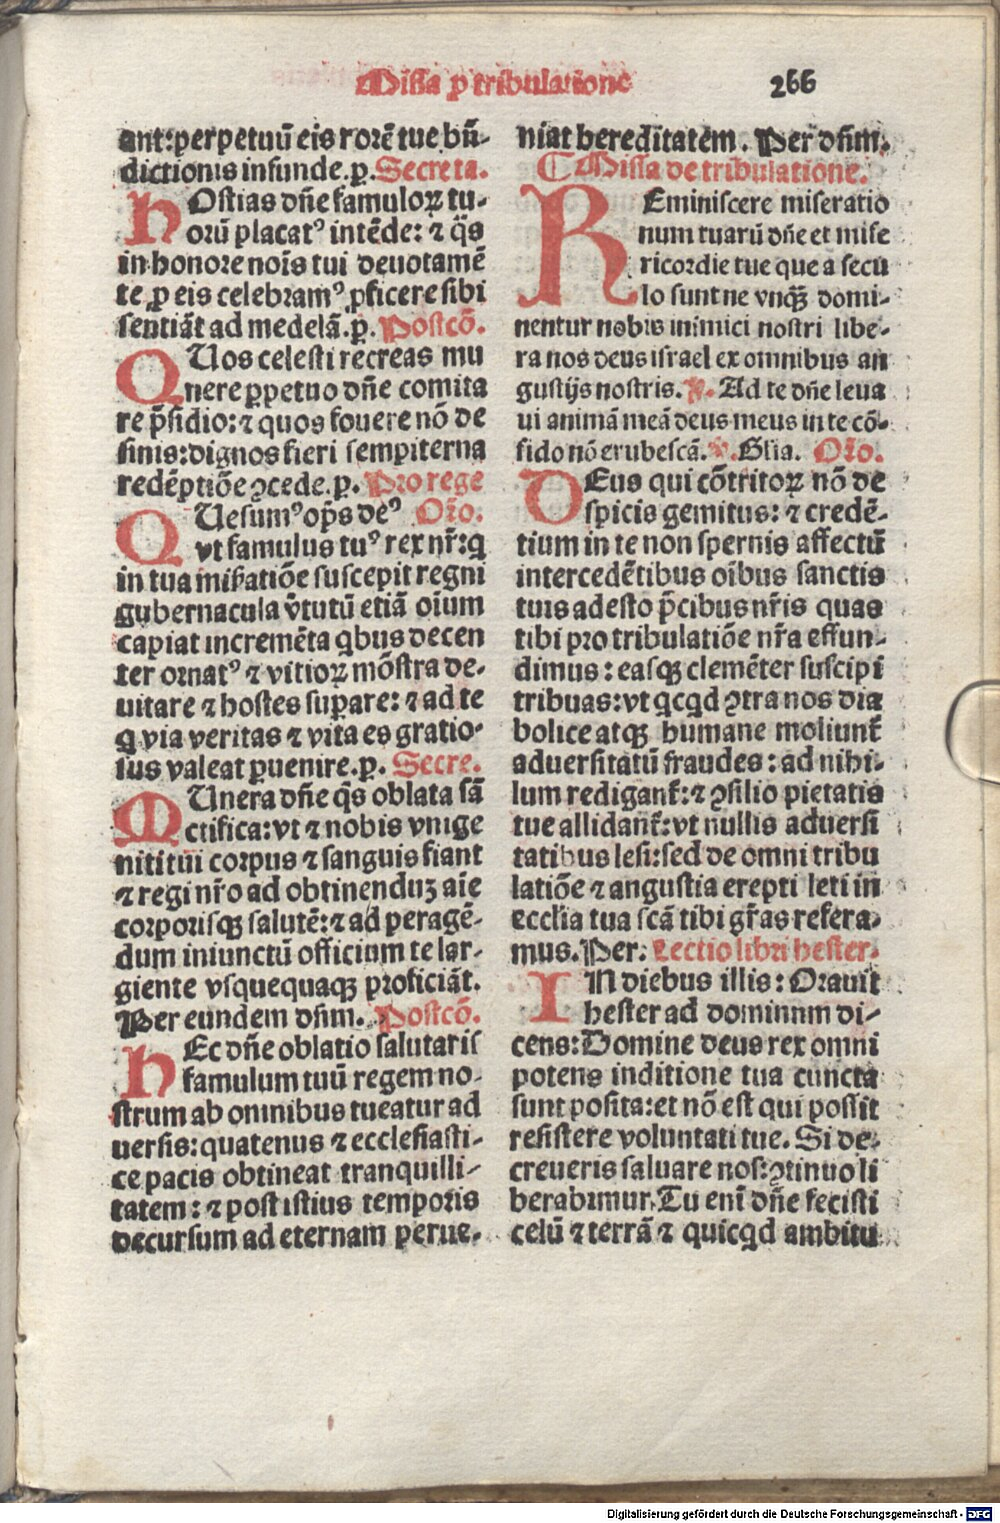 Missa ꝓ tribulatione 266
ant: perpetuū eis rorē tue bn̄-
dictionis infunde. ꝑ. Secreta.
HOstias dn̄e famuloꝝ tu-
orū placatꝰ intēde: ⁊ q̄s
in honore nois̄ tui deuotamē
te ꝓ eis celebramꝰ ꝓficere sibi
sentiāt ad medelā. ꝑ. Postcō.
QUos celesti recreas mu
nere ꝑpetuo dn̄e comita
re p̄sidio: ⁊ quos fouere nō de
sinis: dignos fieri sempiterna
redēptiōe ꝯcede. ꝑ. Pro rege
QUesumꝰ op̄s deꝰ Oro̅.
vt famulus tuꝰ rex nr̄: q
in tua mis̄atiōe suscepit regni
gubernacula v̄tutū etiā oīum
capiat incremēta qbus decen
ter ornatꝰ ⁊ vitioꝝ mōstra de-
uitare ⁊ hostes suꝑare: ⁊ ad te
q via veritas ⁊ vita es gratio-
sus valeat ꝑuenire. ꝑ. Secre.
MUnera dn̄e q̄s oblata sā
ctifica: vt ⁊ nobis vnige
niti tui corpus ⁊ sanguis fiant
⁊ regi nr̄o ad obtinenduꝫ aīe
corporisqꝫ salutē: ⁊ ad peragē-
dum iniunctū officium te lar-
giente vsquequaqꝫ proficiāt.
Per eundem dn̄m. Postcō.
HEc dn̄e oblatio salutaris
famulum tuū regem no-
strum ab omnibus tueatur ad
uersis: quatenus ⁊ ecclesiasti-
ce pacis obtineat tranquilli-
tatem: ⁊ post istius temporis
decursum ad eternam perue-
niat hereditatem. Per dn̄m.
⸿ Missa de tribulatione.
REminiscere miseratio
num tuarū dn̄e et mise
ricordie tue que a secu
lo sunt ne vnqꝫ domi-
nentur nobis inimici nostri libe-
ra nos deus israel ex omnibus an
gustijs nostris. ps. Ad te dn̄e leua
ui animā meā deus meus in te cō-
fido nō erubescā. v. Glīa. Oro̅.
DEus qui cōtritoꝝ nō de
spicis gemitus: ⁊ credē-
tium in te non spernis affectū
intercedētibus oībus sanctis
tuis adesto p̄cibus nr̄is quas
tibi pro tribulatiōe nr̄a effun-
dimus: easqꝫ clemēter suscipi
tribuas: vt qcqd ꝯtra nos dia
bolice atqꝫ humane moliunt̄
aduersitatū fraudes: ad nihi-
lum redigant̄: ⁊ ꝯsilio pietatis
tue allidant̄: vt nullis aduersi
tatibus lesi: sed de omni tribu
latiōe ⁊ angustia erepti leti in
ecclīa tua scā tibi gr̄as refera-
mus. Per: Lectio libri hester.
IN diebus illis: Orauit
hester ad dominum di-
cens: Domine deus rex omni
potens inditione tua cuncta
sunt posita: et nō est qui possit
resistere voluntati tue. Si de-
creueris saluare nos: ꝯtinuo li
berabimur. Tu eni̅ dn̄e fecisti
celū ⁊ terrā ⁊ quicqd ambitu
Digitalisierung gefördert durch die Deutsche Forschungsgemeinschaft - DFG